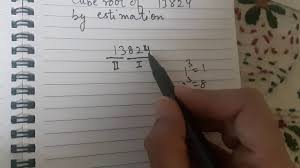 Cube root of 13824
by estimation
13824
II I
1³=1
³=8